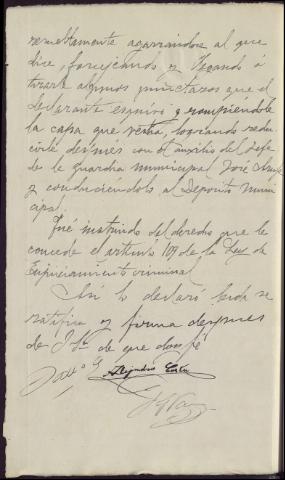 agarrándose al que
dice, forcejeando y llegando á
tirarle algunos puñetazos que el
declarante esquivó y rompiendole
la capa que vestia, logrando redu
cirle después con el auxilio del Jefe
de la Guardia municipal José
y conduciéndolo al Deposito muni
cipal.
Fué instruido del derecho que le
concede el articulo 109 de la Ley de
Enjuiciamiento criminal
Asi lo declaró leida se
ratifica y firma despues
de S. Sa. de que doy fé
Alejandro